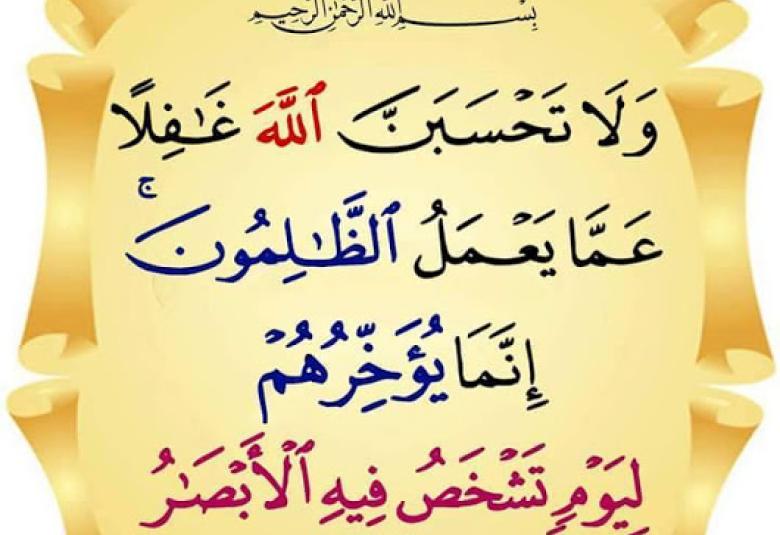 بِسْمِ اللَّهِ الرَّحْمَٰنِ الرَّحِيمِ
وَلَا تَحْسَبَنَّ ٱللَّهَ غَٰفِلًا
عَمَّا يَعْمَلُ ٱلظَّٰلِمُونَ ۚ
إِنَّمَا يُؤَخِّرُهُمْ
لِيَوْمٍ تَشْخَصُ فِيهِ ٱلْأَبْصَٰرُ